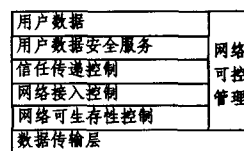 用户数据
用户数据安全服务
信任传递控制
网络接入控制
网络可生存性控制
数据传输层
网络
可控
管理